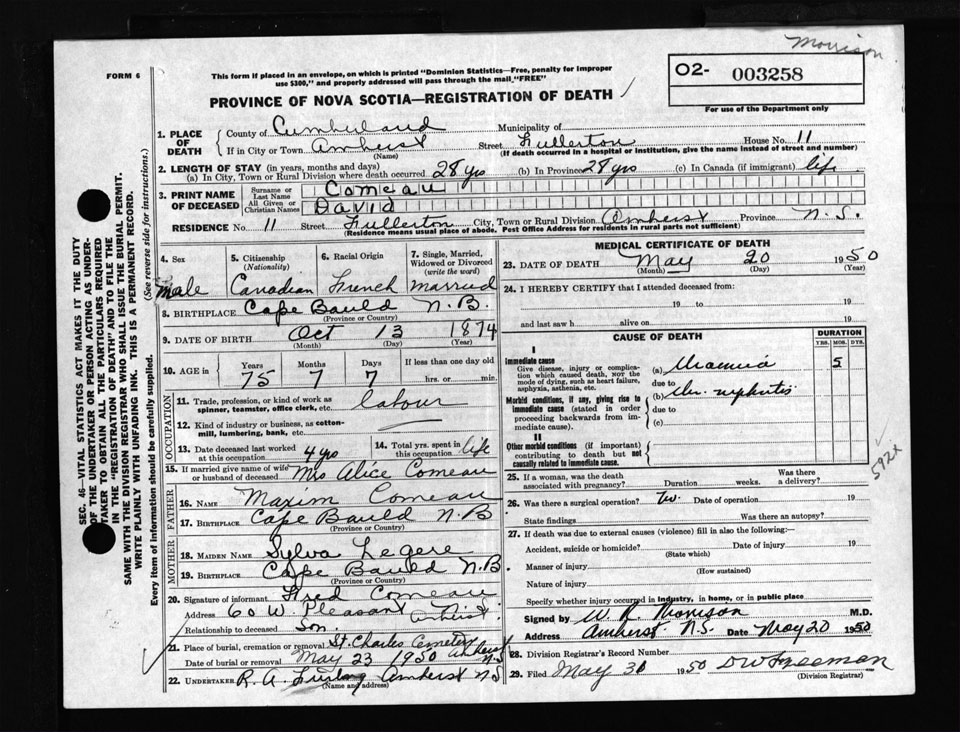 Morrison
FORM 6
This form if placed in an envelope, on which is printed "Dominion Statistics—Free, penalty for improper
use $300," and properly addressed will pass through the mail "FREE"
O2- 003258
For use of the Department only
PROVINCE OF NOVA SCOTIA—REGISTRATION OF DEATH
1. PLACE OF DEATH { County of Cumberland Municipality of
If in City or Town Amherst Street Fullerton House No. 11
(Name) (If death occurred in a hospital or institution, give the name instead of street and number)
2. LENGTH OF STAY (in years, months and days)
(a) In City, Town or Rural Division where death occurred 28 yrs (b) In Province 28 yrs (c) In Canada (if immigrant) life
3. PRINT NAME OF DECEASED { Surname or Last Name Comeau
All Given or Christian Names David
RESIDENCE No. 11 Street Fullerton City, Town or Rural Division Amherst Province N.S.
(Residence means usual place of abode. Post Office Address for residents in rural parts not sufficient)
4. Sex
male
5. Citizenship (Nationality)
Canadian
6. Racial Origin
French
7. Single, Married, Widowed or Divorced (write the word)
married
8. BIRTHPLACE Cape Bauld N.B.
(Province or Country)
9. DATE OF BIRTH Oct 13 1874
(Month) (Day) (Year)
10. AGE in { Years Months Days If less than one day old
75 7 7 hrs. or min.
OCCUPATION
11. Trade, profession, or kind of work as spinner, teamster, office clerk, etc. labour
12. Kind of industry or business, as cotton-mill, lumbering, bank, etc.
13. Date deceased last worked at this occupation 4 yrs
14. Total yrs. spent in this occupation life
15. If married give name of wife or husband of deceased Mrs Alice Comeau
FATHER
16. NAME Maxim Comeau
17. BIRTHPLACE Cape Bauld N.B
(Province or Country)
MOTHER
18. MAIDEN NAME Sylva Legere
19. BIRTHPLACE Cape Bauld N.B.
(Province or Country)
20. Signature of informant Fred Comeau
Address 60 W. Pleasant Amherst
Relationship to deceased Son.
21. Place of burial, cremation or removal St. Charles Cemetery
Date of burial or removal May 23 1950 Amherst N.S
22. UNDERTAKER R. A. Amherst N S
(Name and address)
MEDICAL CERTIFICATE OF DEATH
23. DATE OF DEATH May 20 1950
(Month) (Day) (Year)
24. I HEREBY CERTIFY that I attended deceased from:
19 to 19
and last saw h alive on 19
CAUSE OF DEATH
DURATION
YRS. MOS. DYS.
I
Immediate cause
Give disease, injury or complication which caused death, NOT the mode of dying, such as heart failure, asphyxia, asthenia, etc.
(a) Uraemia 5
due to
Morbid conditions, if any, giving rise to immediate cause (stated in order proceeding backwards from immediate cause).
(b) Chr. nephritis
due to
(c)
II
Other morbid conditions (if important) contributing to death but not causally related to immediate cause.
592X
25. If a woman, was the death associated with pregnancy? Duration weeks. Was there a delivery?
26. Was there a surgical operation? Date of operation 19
State findings Was there an autopsy?
27. If death was due to external causes (violence) fill in also the following:—
Accident, suicide or homicide? Date of injury 19
(State which)
Manner of injury
(How sustained)
Nature of injury
Specify whether injury occurred in industry, in home, or in public place
Signed by W. R. Morrison M.D.
Address Amherst N.S. Date May 20 1950
28. Division Registrar's Record Number
29. Filed May 30 1950 D W Freeman
(Division Registrar)
SEC. 46—VITAL STATISTICS ACT MAKES IT THE DUTY
OF THE UNDERTAKER OR PERSON ACTING AS UNDER-
TAKER TO OBTAIN ALL THE PARTICULARS REQUIRED
IN THE "REGISTRATION OF DEATH" AND TO FILE THE
SAME WITH THE DIVISION REGISTRAR WHO SHALL ISSUE THE BURIAL PERMIT.
WRITE PLAINLY WITH UNFADING INK. THIS IS A PERMANENT RECORD.
Every item of information should be carefully supplied. (See reverse side for instructions.)